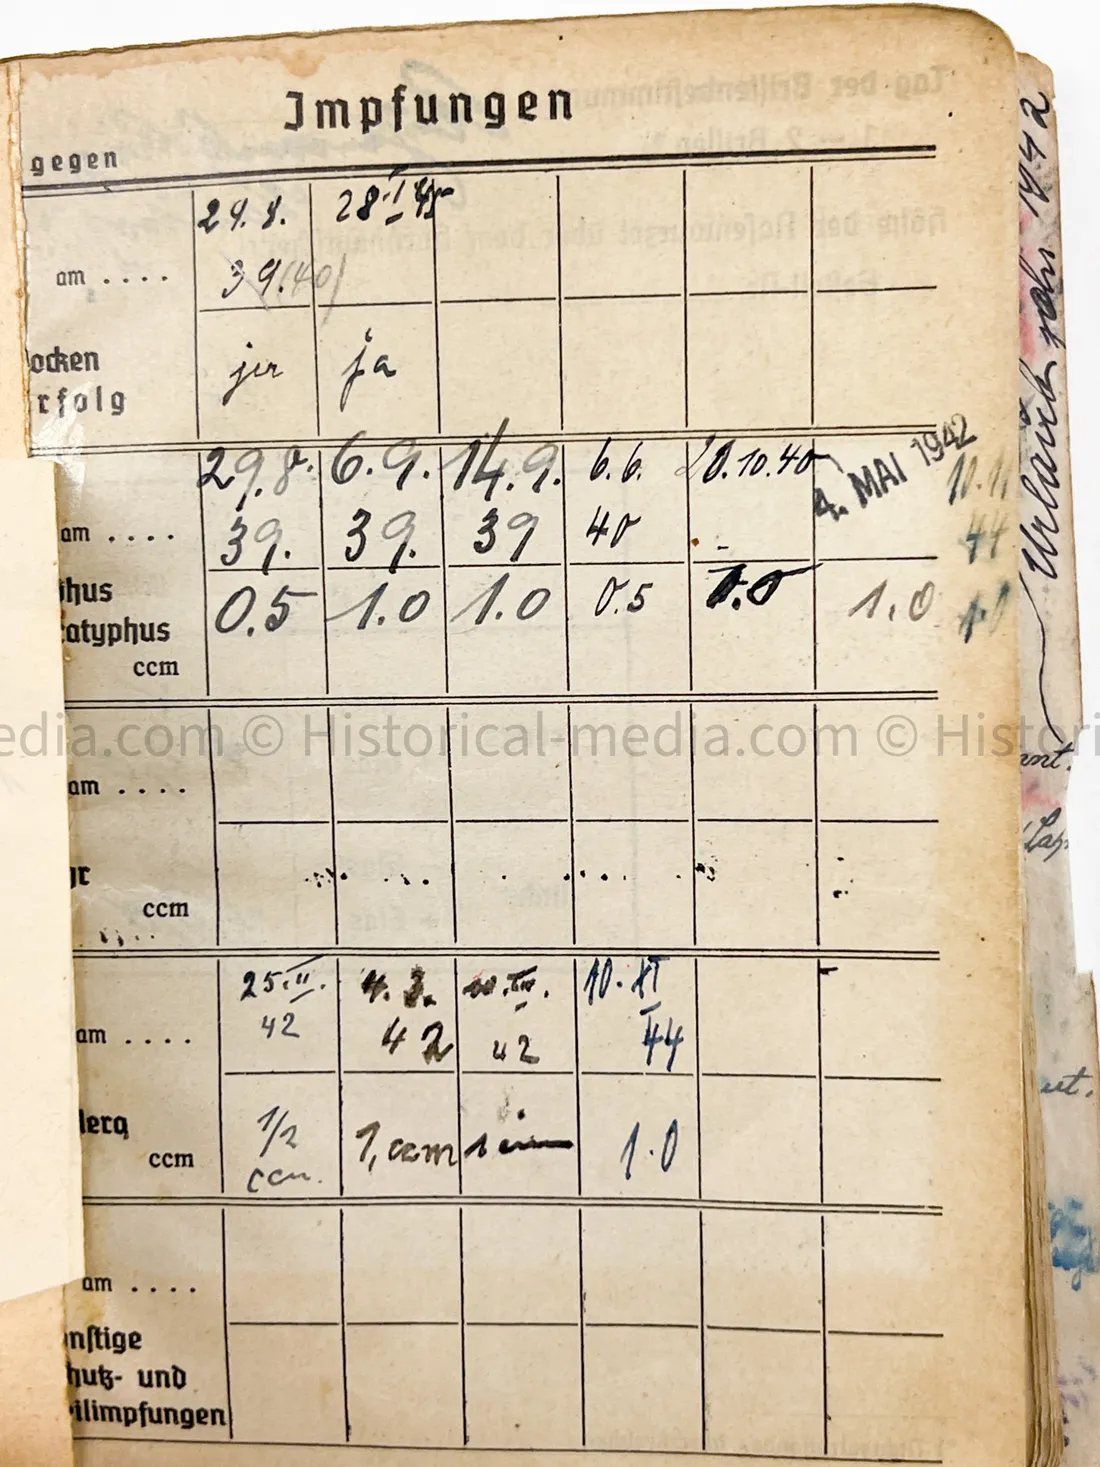 Impfungen
gegen
29. 8. 28 I 45
am .... 39 (40)
ocken
rfolg ja ja
29.8. 6.9. 14.9. 6.6. 28.10.40 4. MAI 1942
am .... 39. 39. 39 40 44
hus 0.5 1.0 1.0 0.5 1.0 1.0 1.0
atyphus
ccm
edia.com © Historical-media.com © Histori
am ....
ccm
25. II. 4. 3. 10. III. 10. XI
am .... 42 42 42 44
1/2 1, ccm 1 1.0
ccm ccm.
am ....
nstige
hutz- und
ilimpfungen
Urlaub 1942